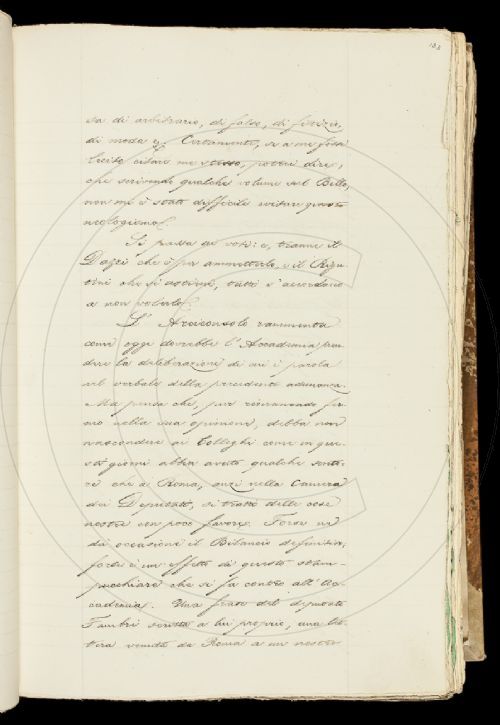 133
sa di arbitrario, di falso, di fittizio,
di moda ec. Certamente, se a me fosse
lecito citare me stesso, potrei dire,
che scrivendo qualche volume sul Bello,
non mi è stato difficile evitare questo
neologismo.
Si passa ai voti: e, tranne il
Dazzi che è per ammetterlo, e il Rigu-
tini che si astiene, tutti s'accordano
a non volerlo.
L'Arciconsolo rammenta
come oggi dovrebbe l'Accademia pren-
dere la deliberazione di cui è parola
nel verbale della precedente adunanza.
Ma pensa che, pur rimanendo fer-
mo nella sua opinione, debba non
nascondere ai Colleghi come in que-
sti giorni abbia avuto qualche sento-
re che a Roma, anzi nella Camera
dei Deputati, si tratti delle cose
nostre con poco favore. Forse ne
dà occasione il Bilancio definitivo,
forse è un effetto di questo
che si fa contro all'Ac-
cademia. Una frase del deputato
scritta a lui proprio, una let-
tera venuta da Roma a un nostro